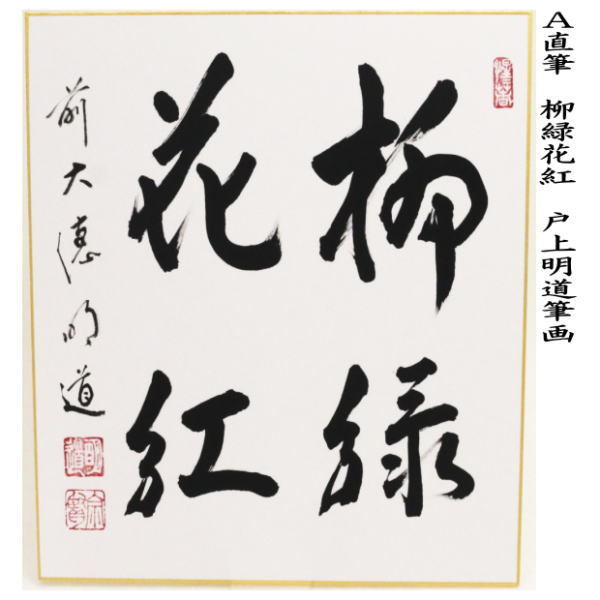 A直筆 柳緑花紅 戸上明道筆画
柳緑
花紅
前大徳明道